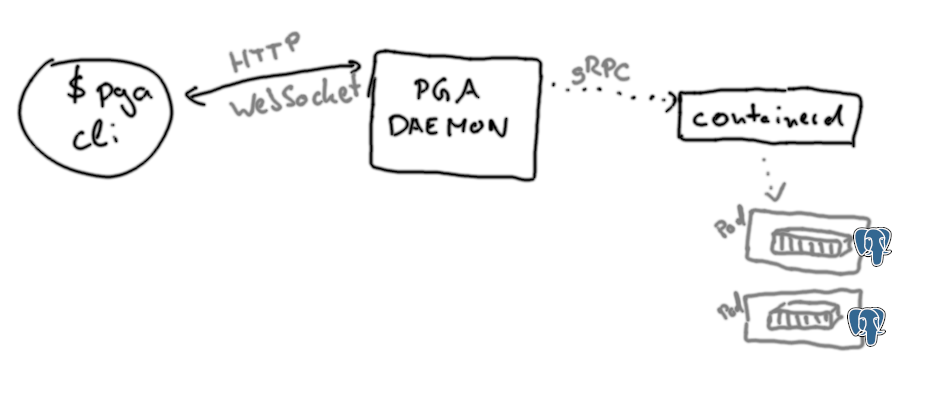 $ pga
cli
HTTP
WebSocket
PGA
DAEMON
gRPC
containerd
Pod
Pod